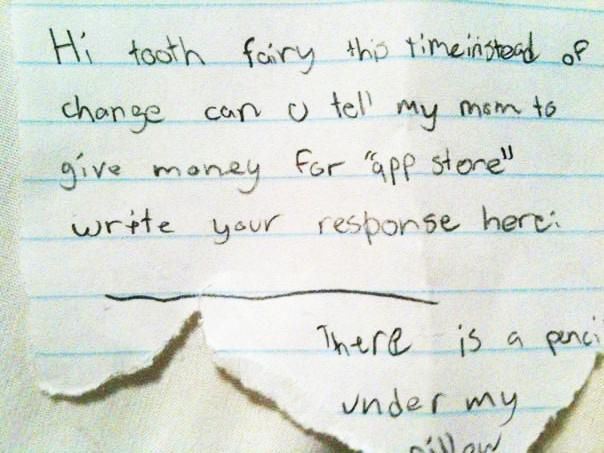 Hi tooth fairy this time instead of
change can u tell my mom to
give money for "app store"
write your response here:
There is a penci
under my
pillow